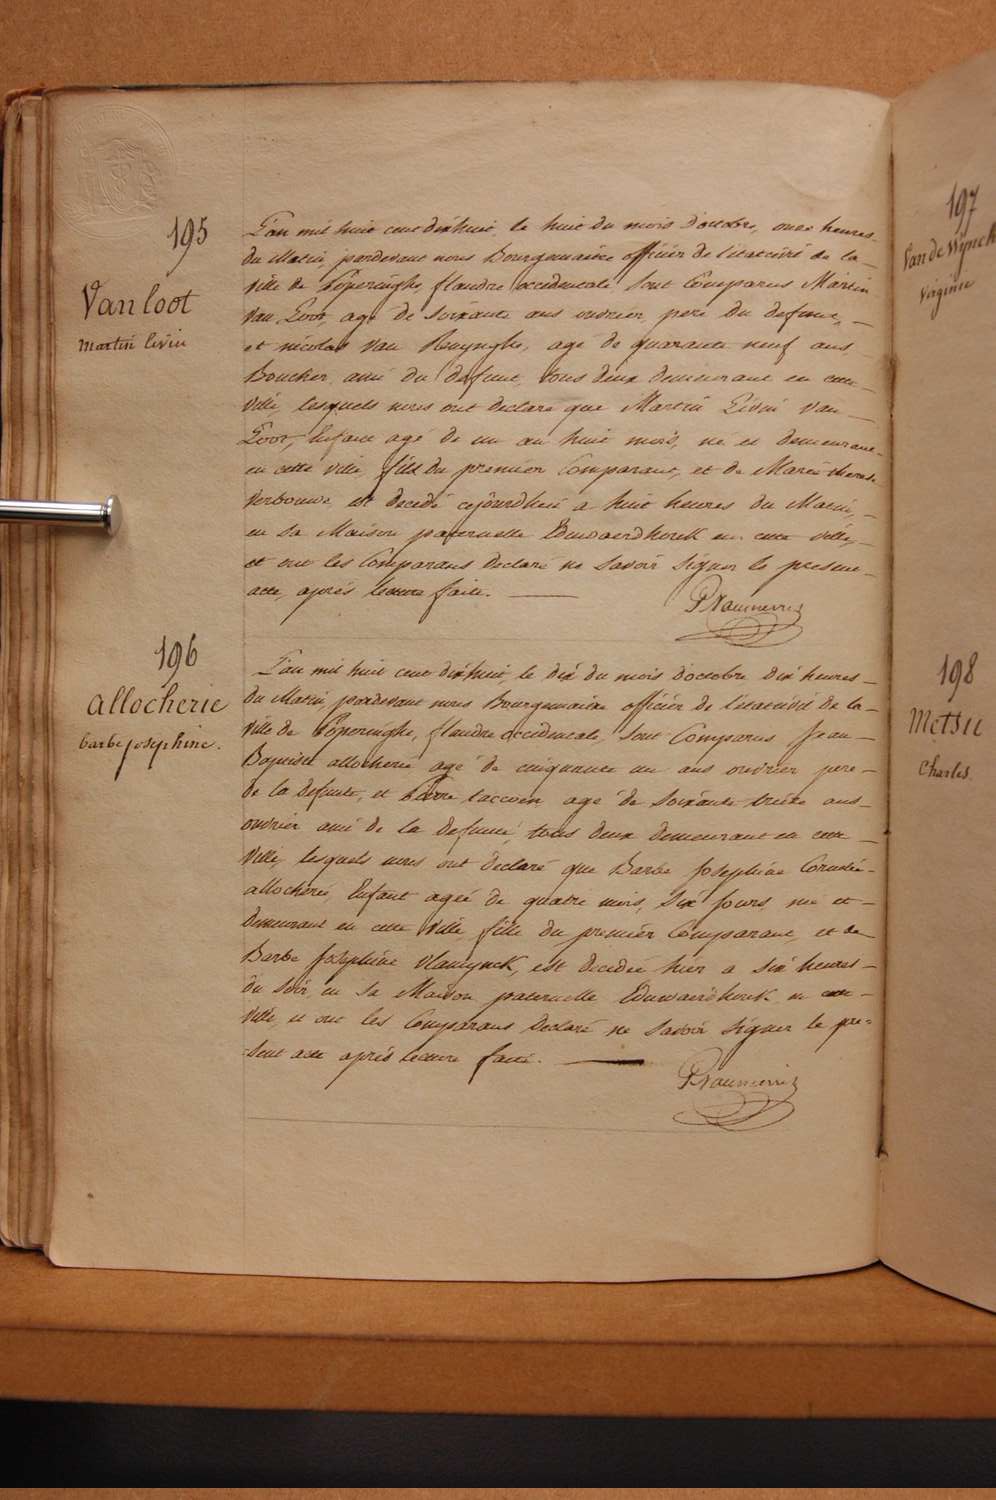 195
Van loot
martin livin
L'an mil huit cent dixhuit, le huit du mois d'octobre, onze heures
du Matin, pardevant nous Bourguemaitre officier de l'état civil de la
ville de Poperinghe, flandre occidentale, sont Comparus Martin
Van Loot, agé de soixante ans ouvrier, pere du defunt,
et nicolas Van Ruynghe, agé de quarante neuf ans
Boucher, ami du defunt, tous deux demeurant en cette
ville, lesquels nous ont declaré que Martin Livin Van
Loot, Enfant agé de un an huit mois, né et demeurant
en cette ville, fils du premier Comparant, et de Marie therese
Verbouwe, est decedé cejourdhui a huit heures du Matin,
en sa Maison paternelle Eduwaerdhoeck en cette ville,
et ont les Comparans declaré ne savoir signer le present
acte, après lecture faite.
196
allocherie
barbe josephine.
L'an mil huit cent dixhuit, le dix du mois d'octobre dix heures
du Matin, pardevant nous Bourguemaitre officier de l'état civil de la
ville de Poperinghe, flandre occidentale, sont Comparus Jean
Baptiste allocherie agé de cinquante un ans ouvrier pere
de la defunte, et Pierre taccoen agé de soixante treize ans
ouvrier ami de la defunte, tous deux demeurant en cette
ville, lesquels nous ont declaré que Barbe Josephine Cornelie
allocherie, Enfant agée de quatre mois, six jours, née et
demeurant en cette ville, fille du premier Comparant, et de
Barbe Josephine Vlamynck, est decedée hier a six heures
du soir, en sa Maison paternelle Eduwaerdhoeck en cette
ville, et ont les Comparans declaré ne savoir signer le pre=
=sent acte après lecture faite.
197
Van de Wynck
Virginie
198
Metsu
Charles